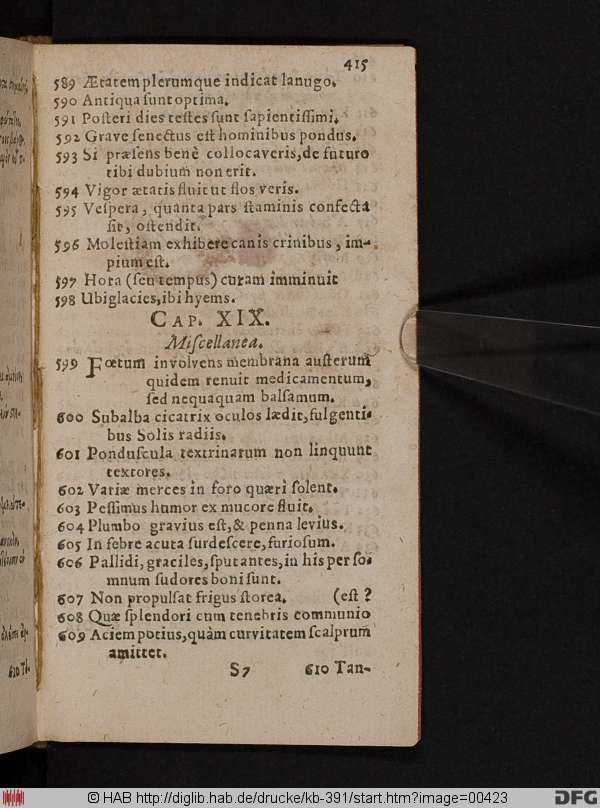 415
589 Ætatem plerumque indicat lanugo.
590 Antiqua ſunt optima.
591 Poſteri dies teſtes ſunt ſapientiſſimi.
592 Grave ſenectus eſt hominibus pondus.
593 Si præſens benè collocaveris, de futuro
tibi dubium non erit.
594 Vigor ætatis fluit ut flos veris.
595 Veſpera, quanta pars ſtaminis confecta
ſit, oſtendit.
596 Moleſtiam exhibere canis crinibus, im-
pium eſt.
597 Hora (ſeu tempus) curam imminuit
598 Ubi glacies, ibi hyems.
CAP. XIX.
Miſcellanea.
599 Fœtum involvens membrana auſterum
quidem renuit medicamentum,
ſed nequaquam balſamum.
600 Subalba cicatrix oculos lædit, fulgenti-
bus Solis radiis.
601 Ponduſcula textrinarum non linquunt
textores.
602 Variæ merces in foro quæri ſolent.
603 Peſſimus humor ex mucore fluit.
604 Plumbo gravius eſt, & penna levius.
605 In febre acuta ſurdeſcere, furioſum.
606 Pallidi, graciles, ſputantes, in his per ſo-
mnum ſudores boni ſunt.
607 Non propulſat frigus ſtorea. (eſt ?
608 Quæ ſplendori cum tenebris communio
609 Aciem potius, quàm curvitatem ſcalprum
amittet.
S7 610 Tan-
610 Tl-
© HAB http://diglib.hab.de/drucke/kb-391/start.htm?image=00423
DFG